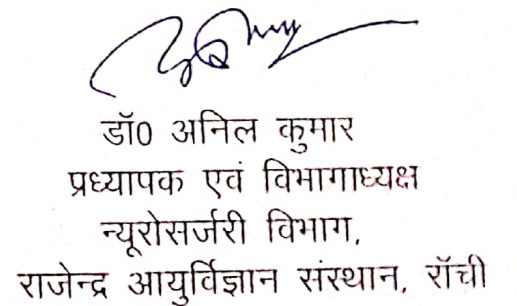 डॉ0 अनिल कुमार
प्रध्यापक एवं विभागाध्यक्ष
न्यूरोसर्जरी विभाग,
राजेन्द्र आयुर्विज्ञान संस्थान, रॉची